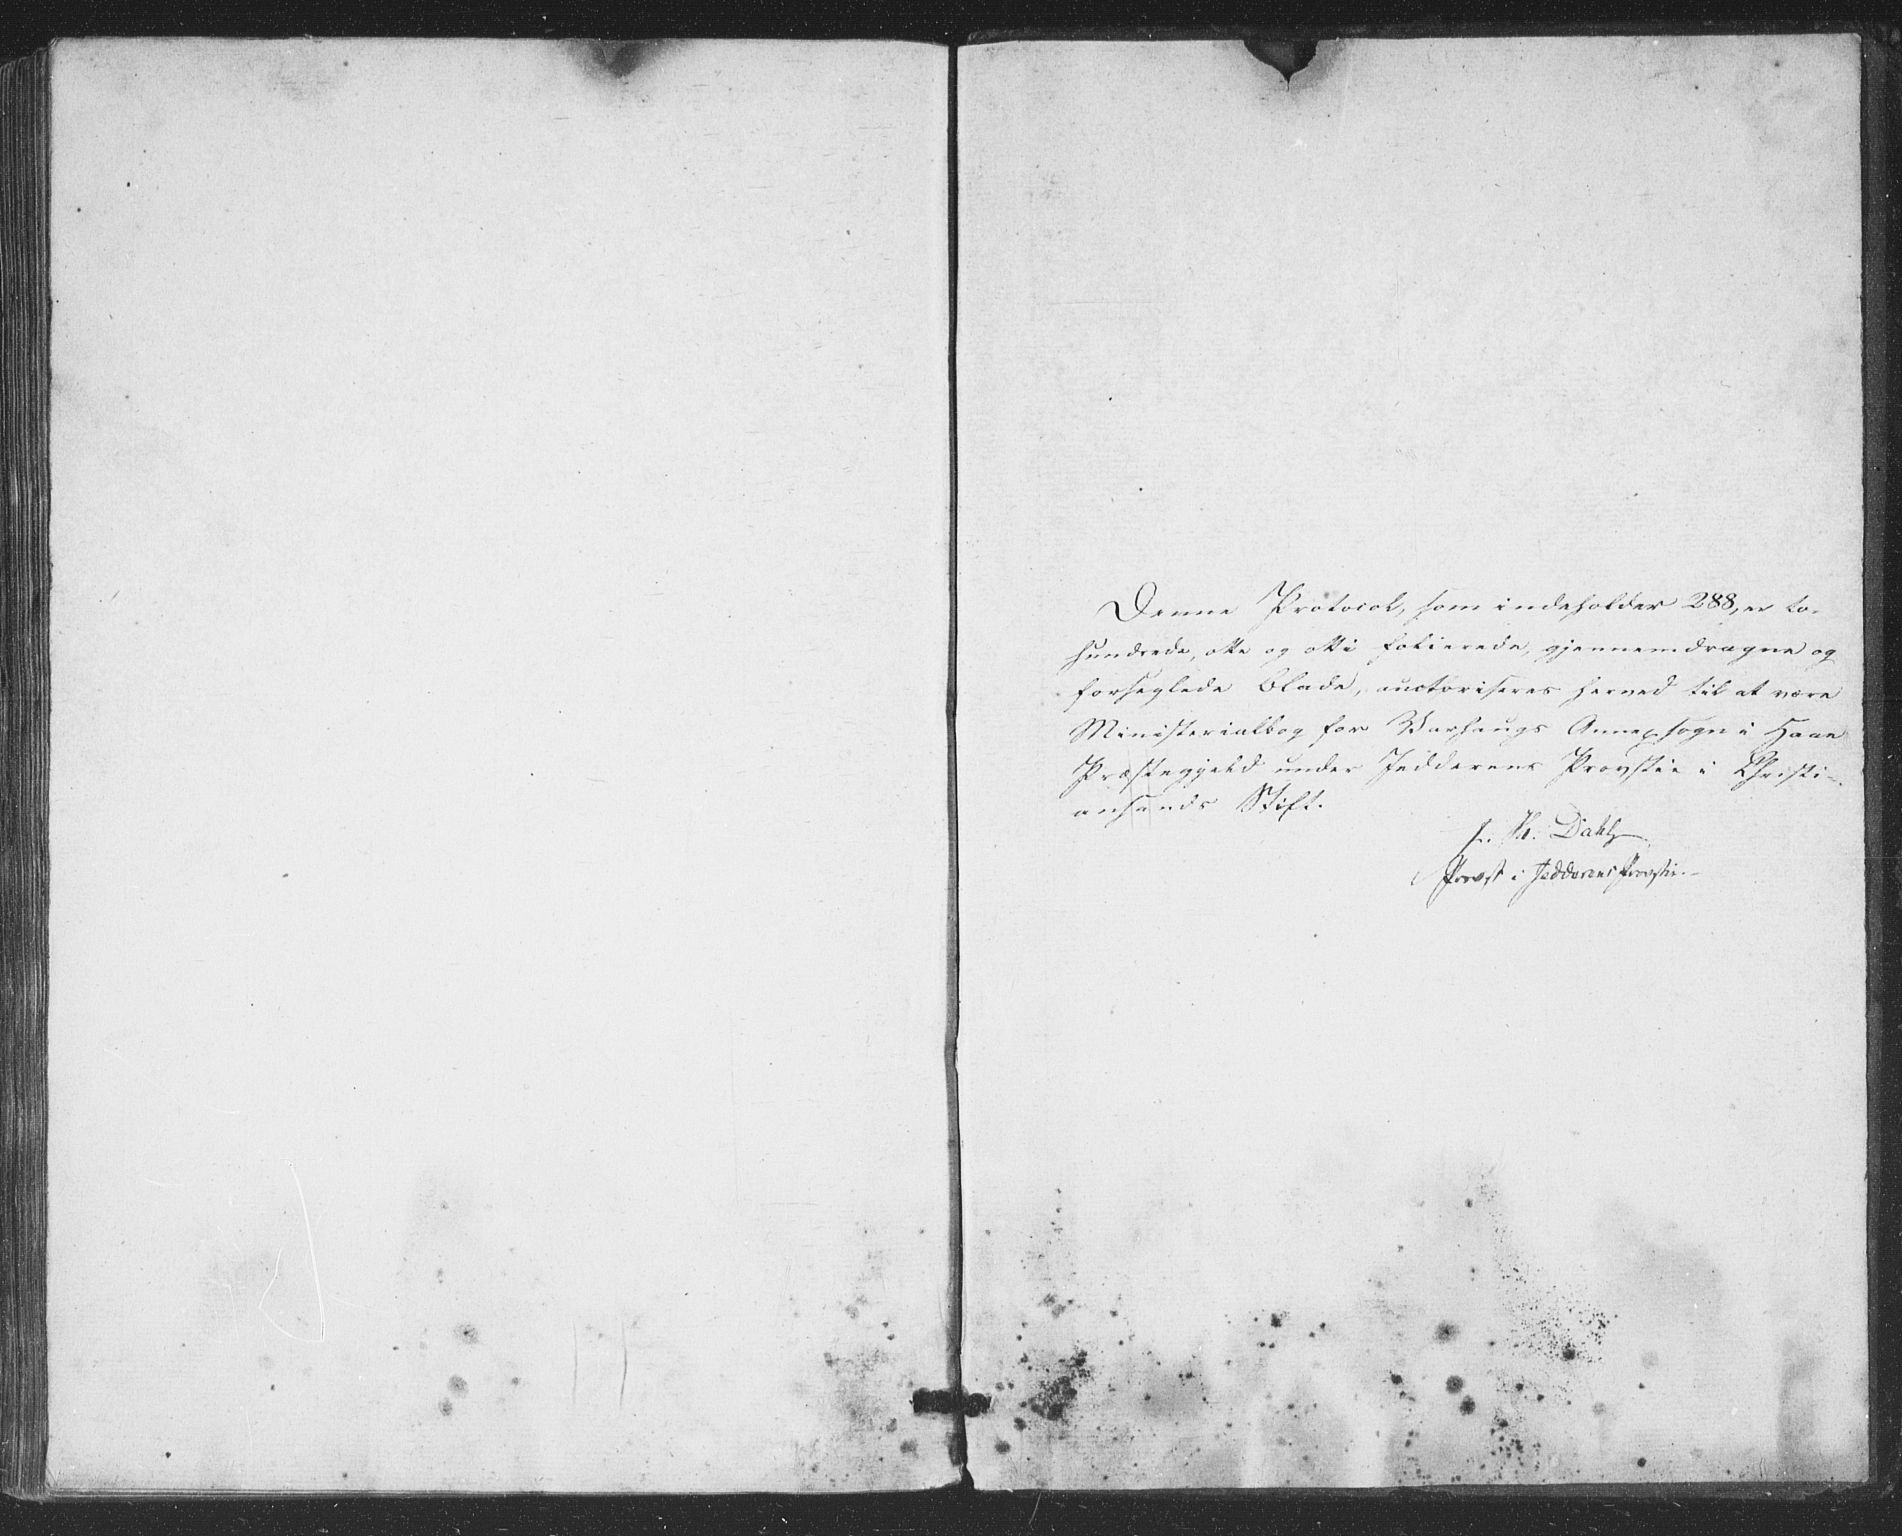 Denne Protocol, som indeholder 288, er to-
hundrede, otte og otti folierede, gjennemdragne og
forseglede Blade, auctoriseres herved til at være
Ministerialbog for Varhaugs Annexsogn i Haae
Præstegjeld under Jedderens Provstie i Christi-
ansands Stift.
Dahl
Provst i Jedderens Provstie.